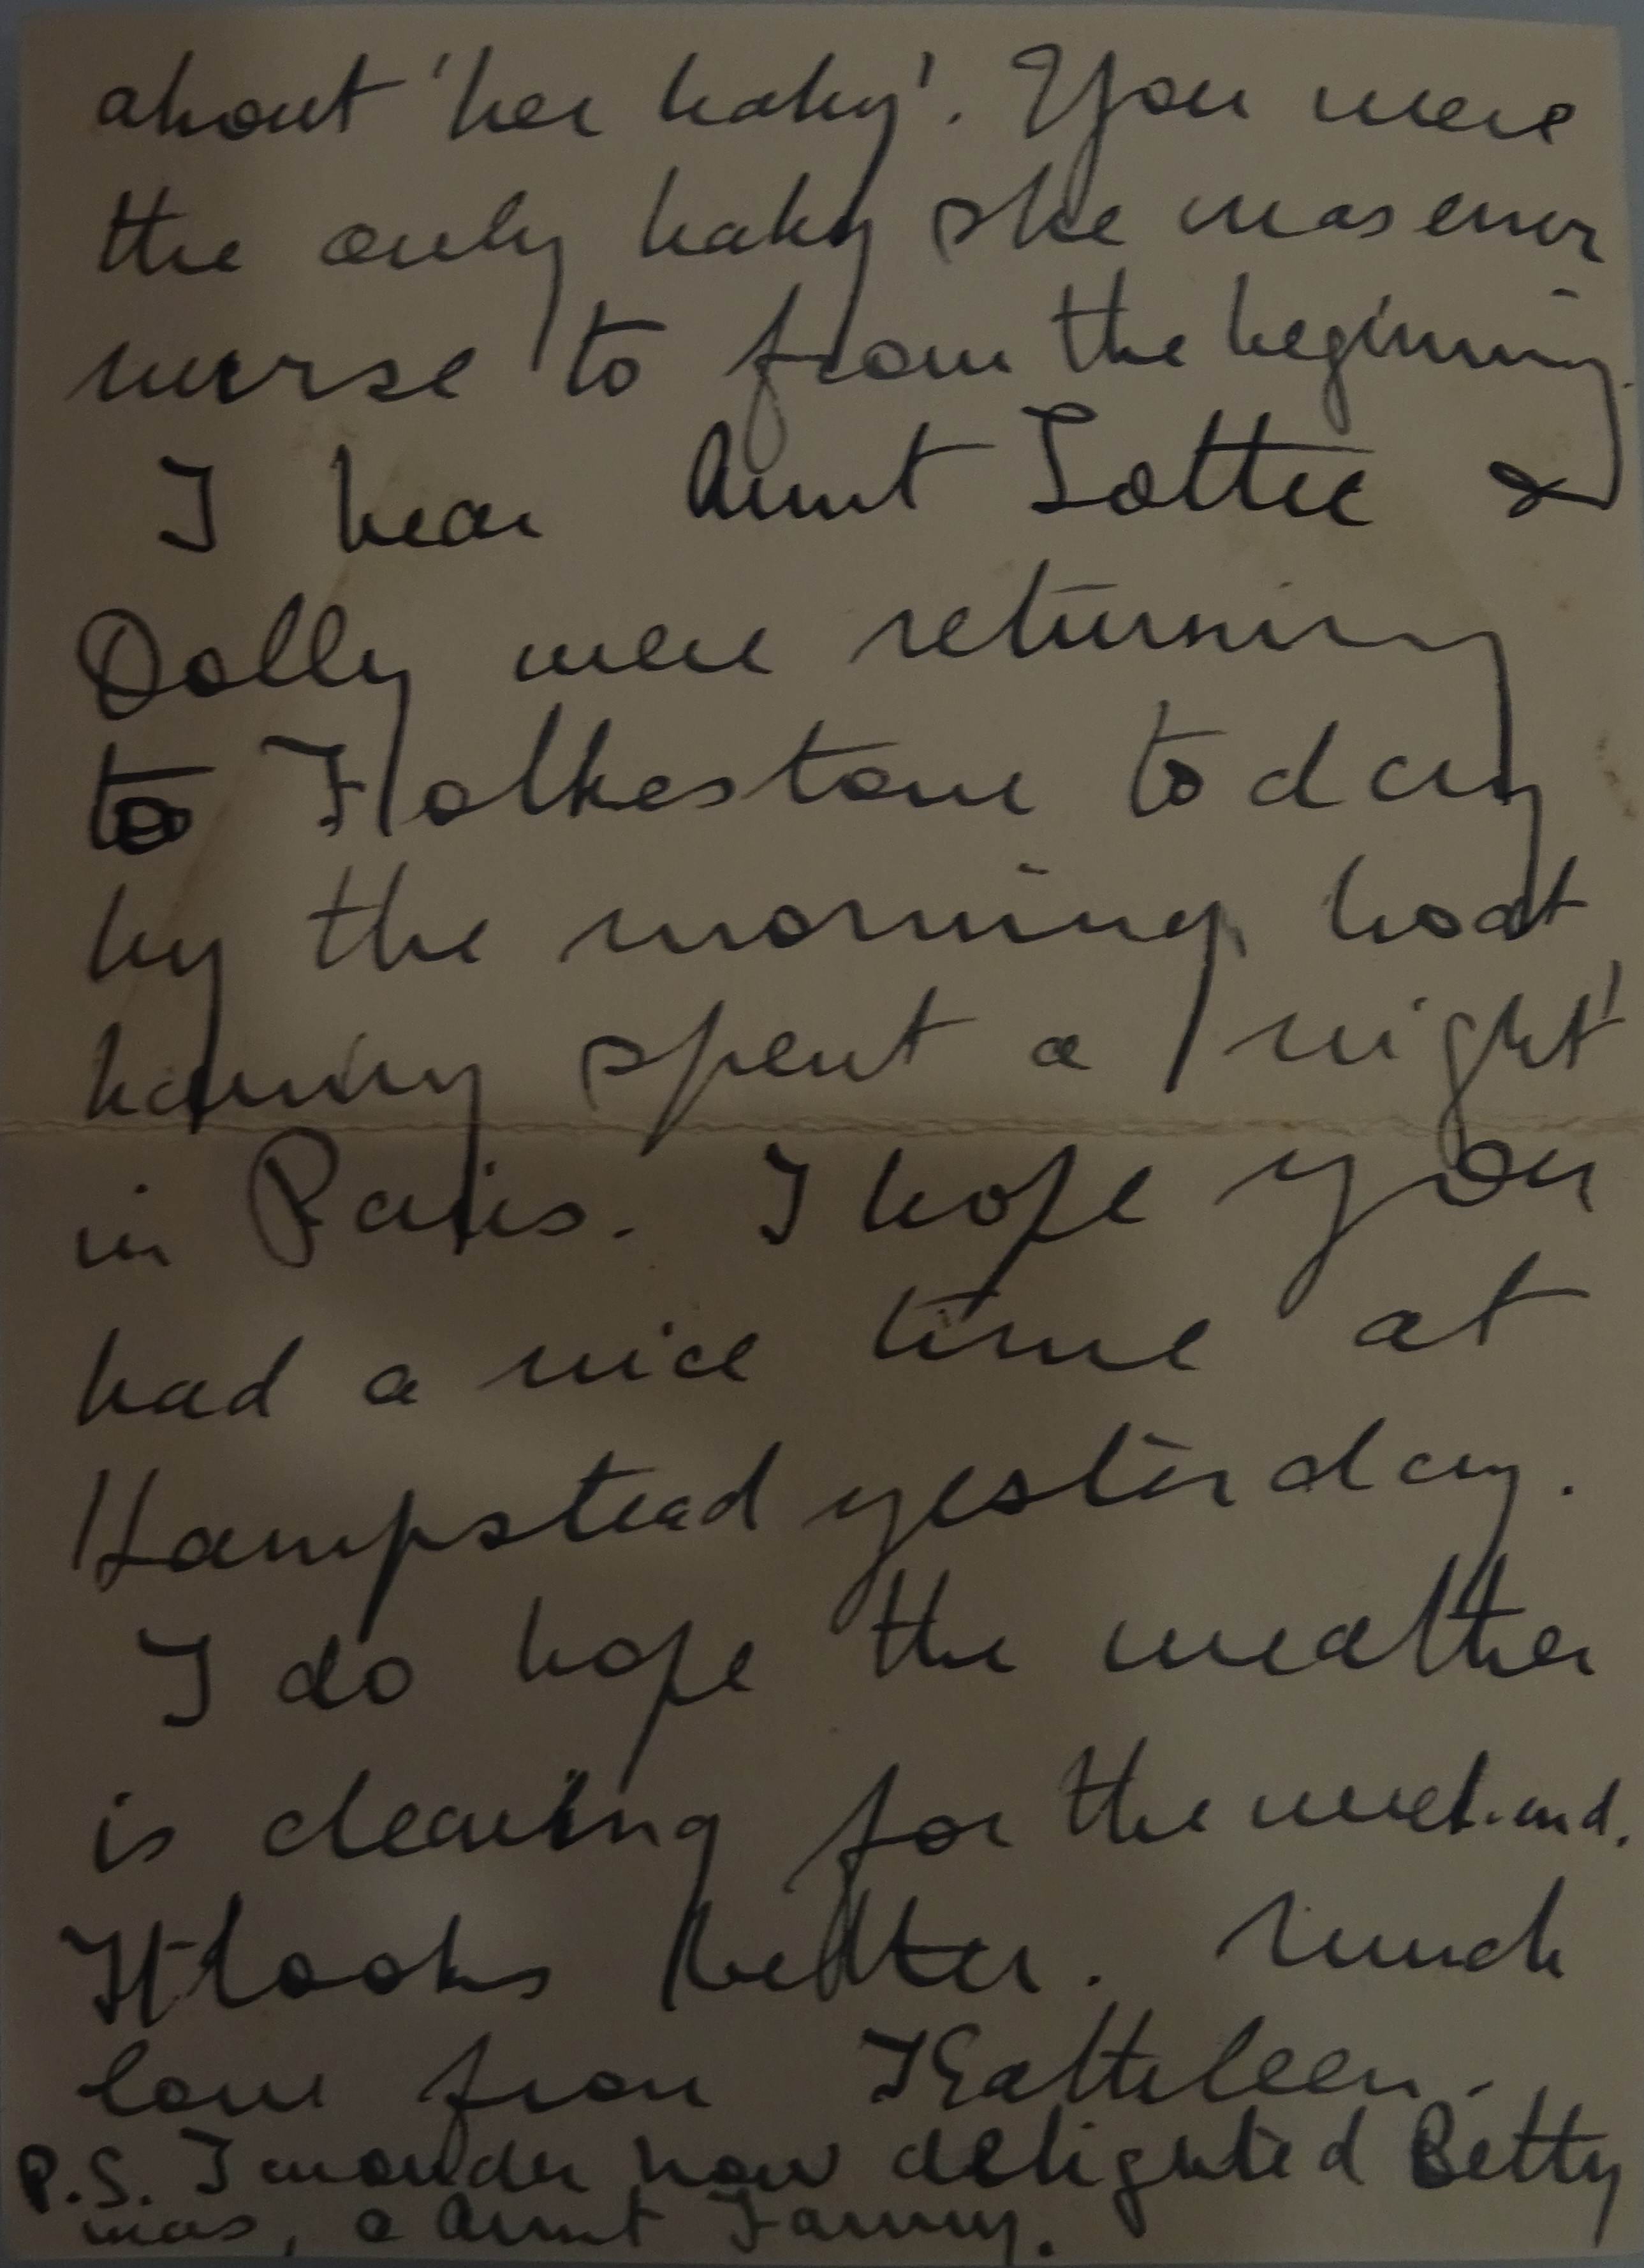 about 'her baby'. You were
the only baby she was ever
nurse to from the beginning.
I hear Aunt Lottie &
Dolly were returning
to Folkestone today
by the morning boat
having spent a 'night'
in Paris. I hope you
had a nice time at
Hampstead yesterday.
I do hope the weather
is clearing for the week-end.
It looks better. Much
love from Kathleen.
P.S. I wonder how delighted Betty
was, & Aunt Fanny.